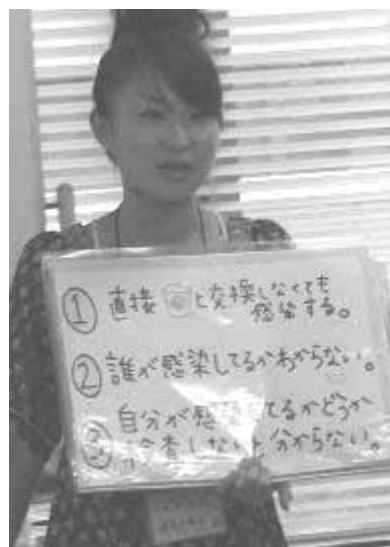 ① 直接 と交換しなくても
感染する。
② 誰が感染してるかわからない。
自分が感染してるかどうか
③ 検査しないと分からない。